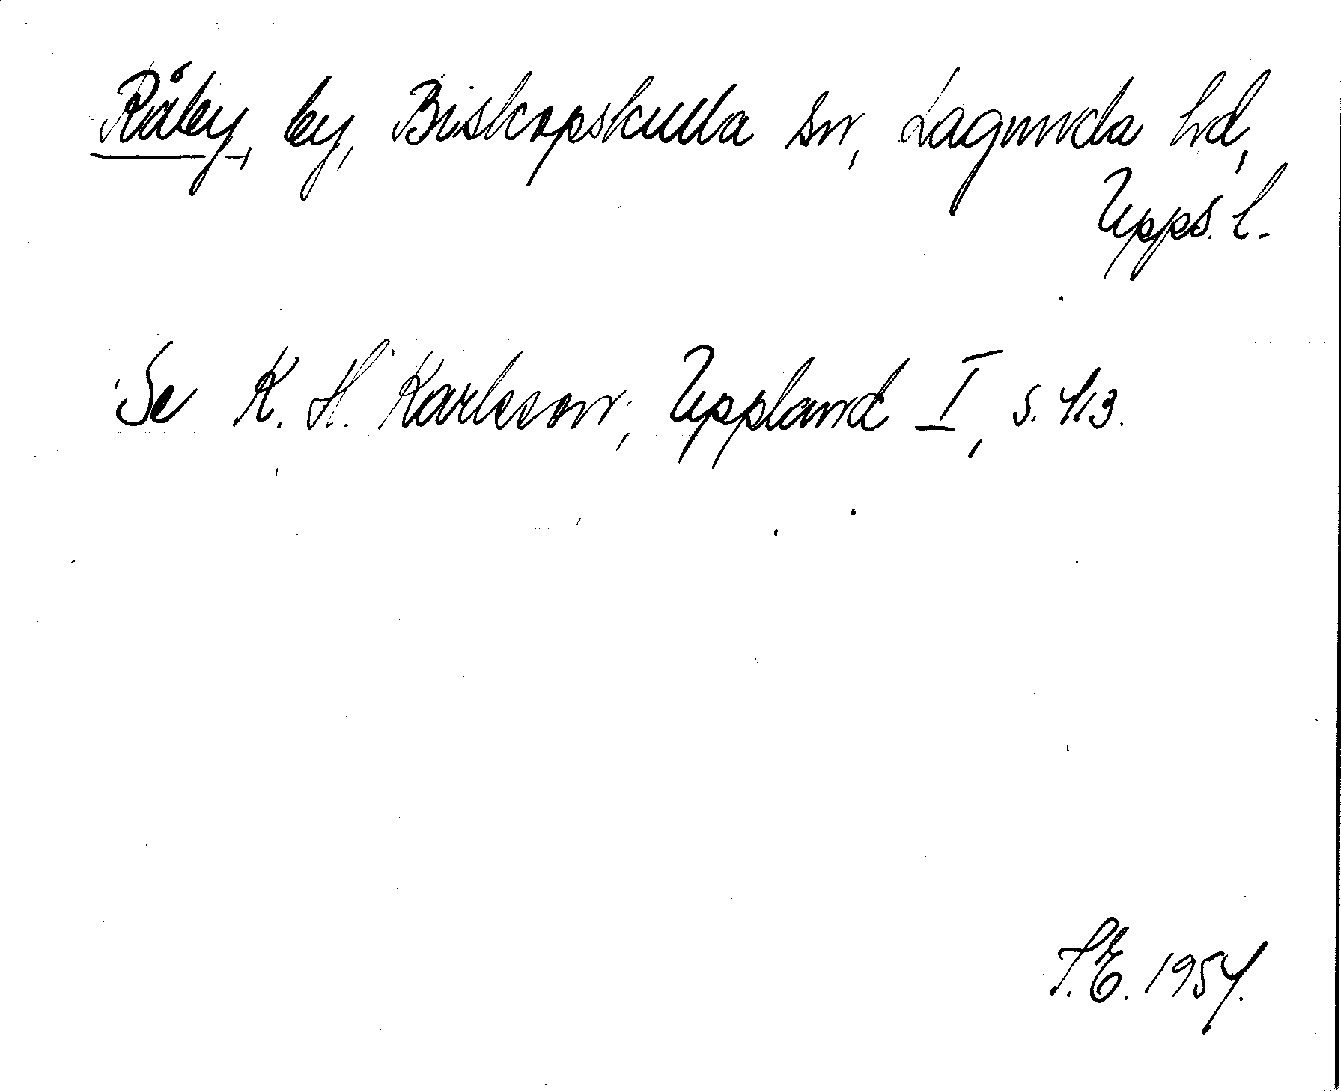 Råby, by, Biskopskulla sn, Lagunda hd,
Upps. l.
Se K. H. Karlsson, Uppland I, s. 413.
S.E. 1954.